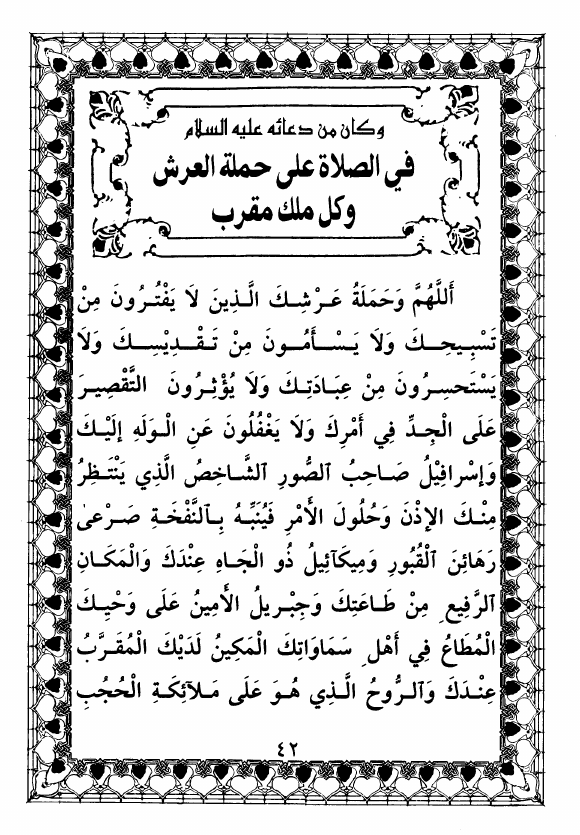 وكان من دعائه عليه السلام
في الصلاة على حملة العرش
وكل ملك مقرب
أَللَّهُمَّ وَحَمَلَةُ عَرْشِكَ الَّذِينَ لَا يَفْتُرُونَ مِنْ
تَسْبِيحِكَ وَلَا يَسْأَمُونَ مِنْ تَقْدِيسِكَ وَلَا
يَسْتَحسِرُونَ مِنْ عِبَادَتِكَ وَلَا يُؤْثِرُونَ التَّقْصِيرَ
عَلَى الْجِدِّ فِي أَمْرِكَ وَلَا يَغْفُلُونَ عَنِ الْوَلَهِ إِلَيْكَ
وَإِسْرافِيْلُ صَاحِبُ ٱلصُّورِ ٱلشَّاخِصُ الَّذِي يَنْتَظِرُ
مِنْكَ الإِذْنَ وَحُلُولَ الأَمْرِ فَيُنَبِّهُ بِٱلنَّفْخَةِ صَرْعىٰ
رَهَائِنَ ٱلْقُبُورِ وَمِيكَآئِيلُ ذُو الْجَاهِ عِنْدَكَ وَالْمَكَانِ
ٱلرَّفِيعِ مِنْ طَاعَتِكَ وَجِبْرِيلُ الأَمِينُ عَلَى وَحْيِكَ
الْمُطَاعُ فِي أَهْلِ سَمَاوَاتِكَ الْمَكِينُ لَدَيْكَ الْمُقَرَّبُ
عِنْدَكَ وَٱلرُّوحُ الَّذِي هُوَ عَلَى مَلَآئِكَةِ الْحُجُبِ
٤٢